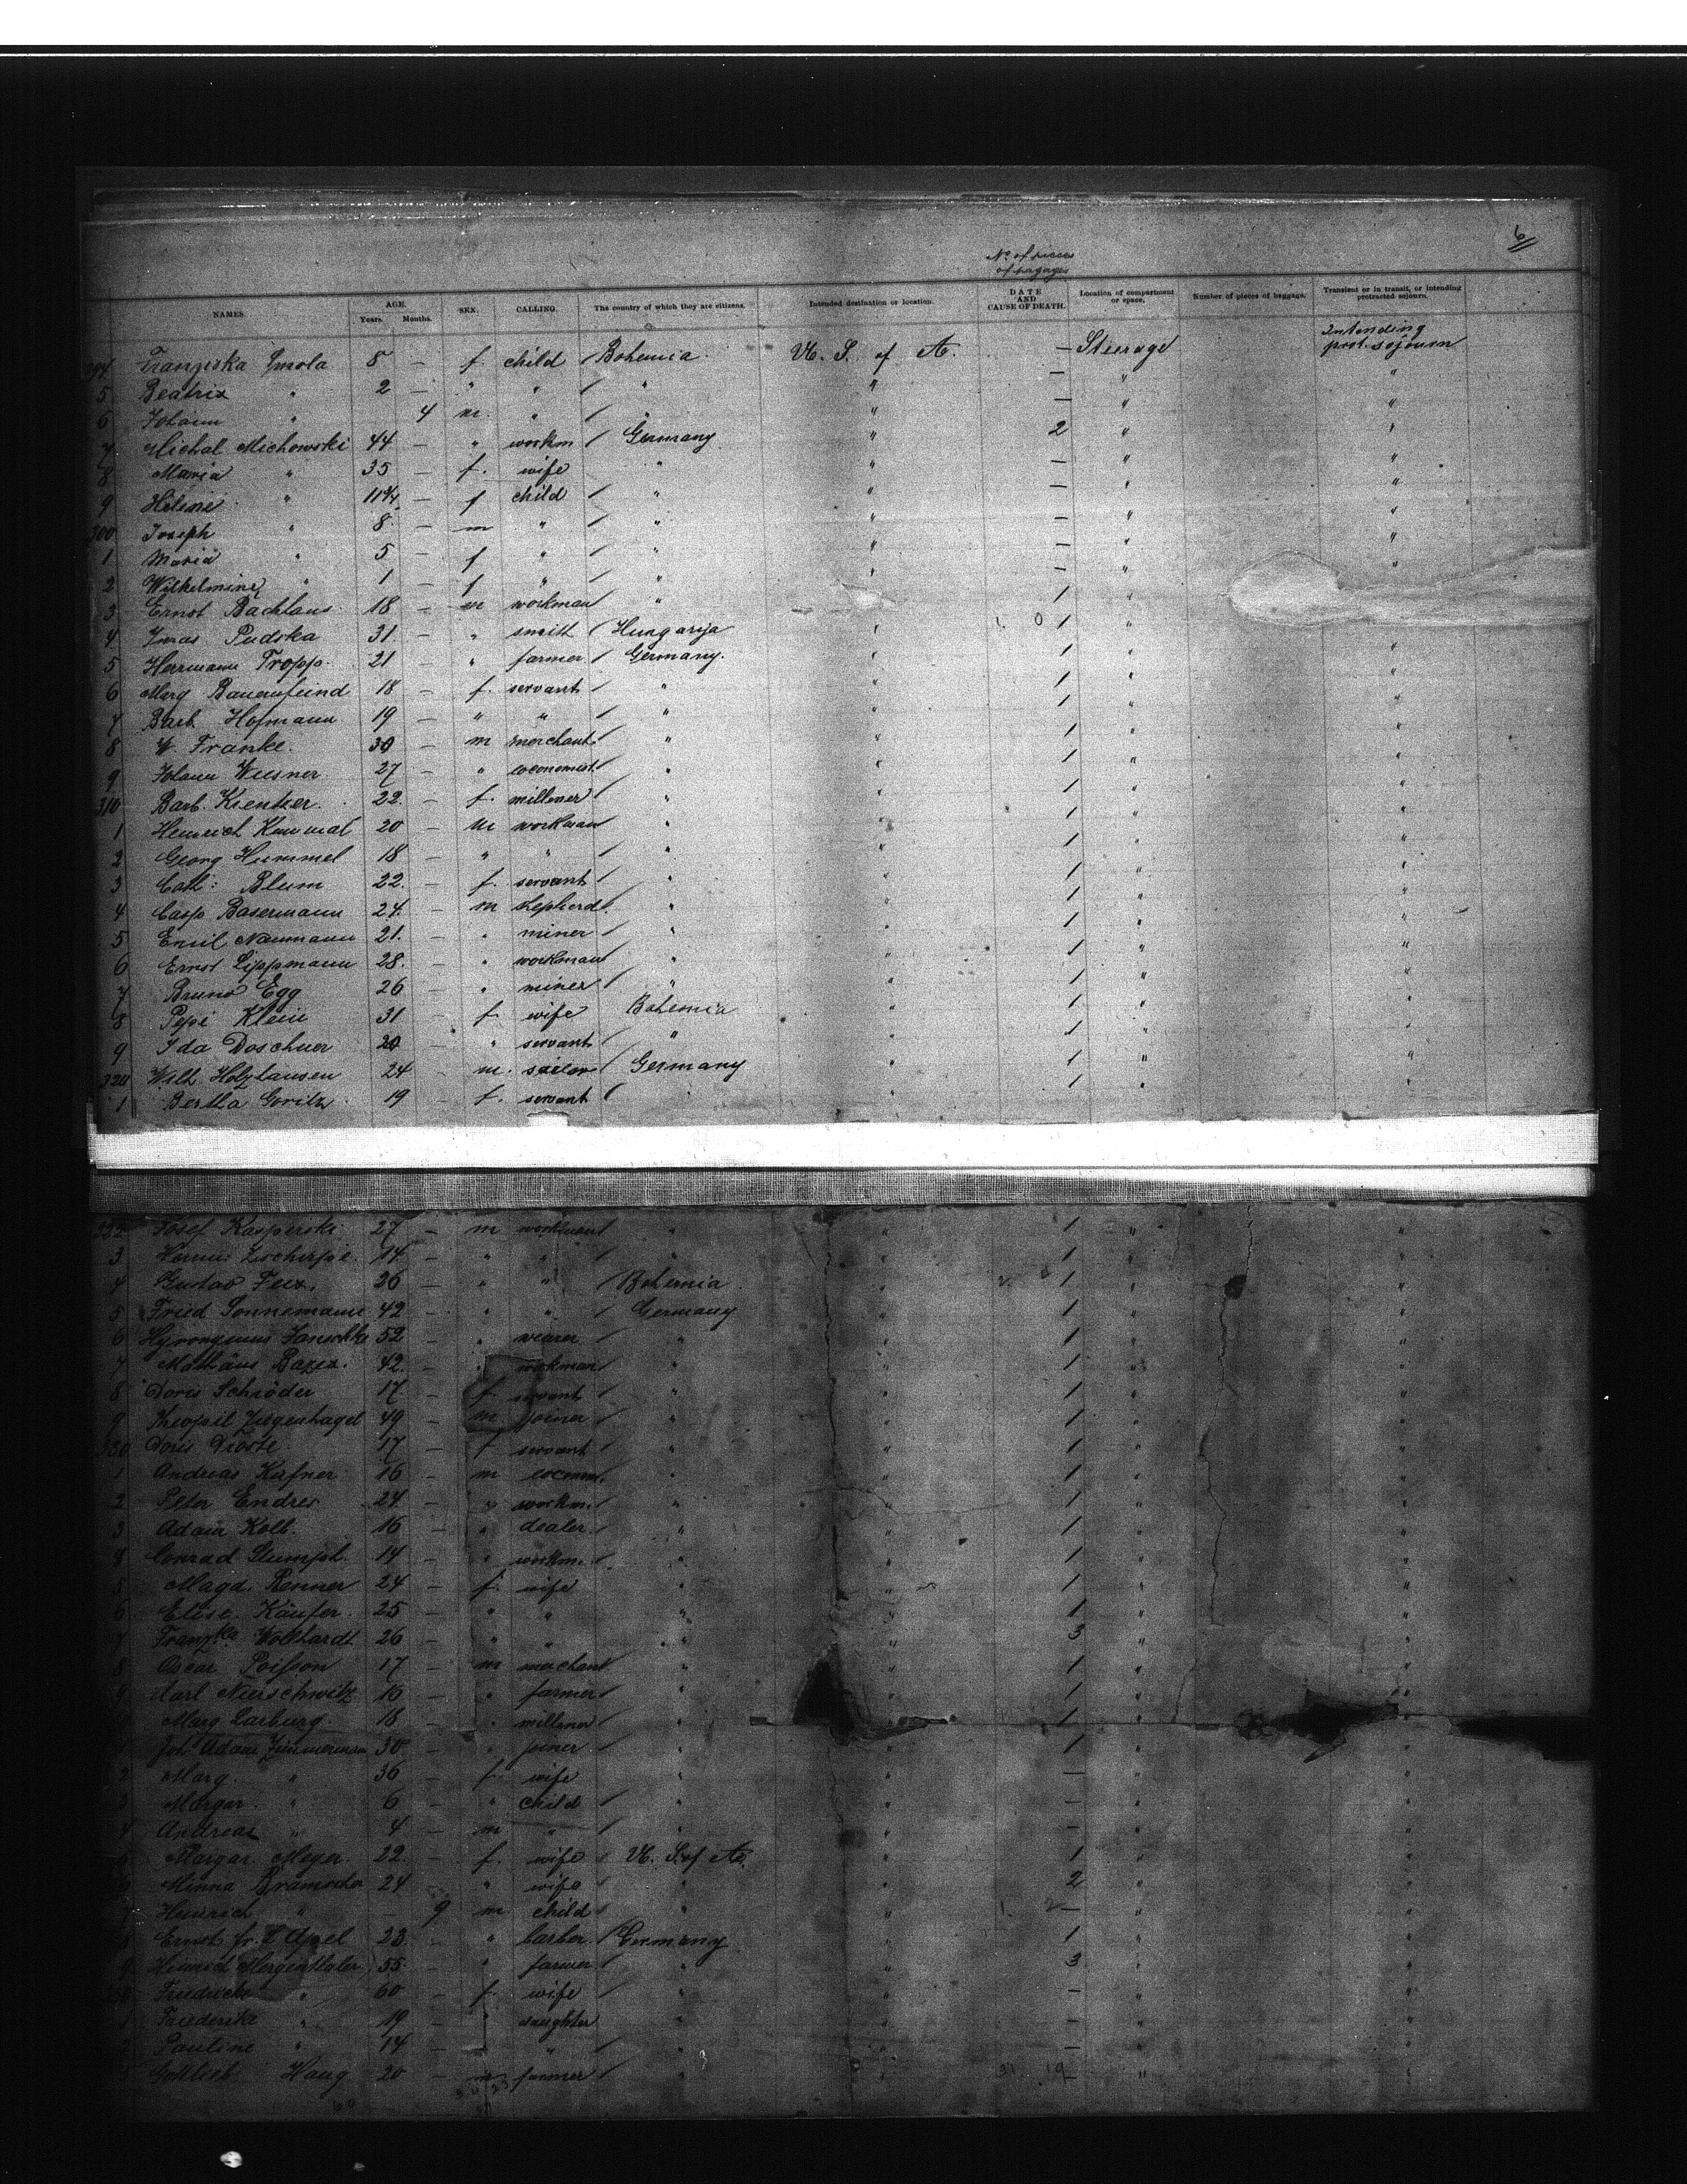 6
No of pieces
of bagages
NAMES. AGE. Years. Months. SEX. CALLING. The country of which they are citizens. Intended destination or location. DATE AND CAUSE OF DEATH. Location of compartment or space. Number of pieces of baggage. Transient or in transit, or intending protracted sojourn.
294 Franziska Smola 8 — f. child Bohemia. U. S. of A. — Steerage Intending prot. sojourn
5 Beatrix " 2 — " " / " " — " "
6 Johann " 4 m. " / " " — " "
7 Michal Michowski 44 — " workm / Germany " 2 " "
8 Maria " 35 — f. wife " " — " "
9 Helene " 11 3/4 — f child / " " — " "
300 Joseph " 8 — m " / " " — " "
1 Maria " 5 — f " / " " — " "
2 Wilhelmine " 1 — f " / " " — " "
3 Ernst Bachlaus 18 — m workman " " 1 "
4 Pudska 31. — " smith / Hungarija " 1 " "
5 Herrmann Tropp. 21 — " farmer / Germany. " 1 " "
6 Marg Bauernfeind 18 — f. servant / " " 1 " "
7 Barb. Hofmann 19 — " " / " " 1 " "
8 W. Franke. 30 — m merchant / " " 1 " "
9 Johann Wiesner 27 — " economist / " " 1 " "
310 Barb. Kientzer. 22. — f. milliner / " " 1 " "
1 Heinrich 20 — m workman " " 1 " "
2 Georg Hummel 18 — " " / " " 1 " "
3 Cath: Blum 22. — f. servant / " " 1 " "
4 Casp Basermann 24. — m shepherd / " " 1 " "
5 Emil Naumann 21. — " miner / " " 1 " "
6 Ernst Lippmann 28. — " workman " " 1 " "
7 Bruno Egg 26 — " miner / " " 1 " "
8 Pepi Klein 31 — f. wife Bohemia " 1 " "
9 Ida Doschner 20 — " servant / " " 1 " "
320 Wilh. Holzhausen 24 — m. sailor / Germany " 1 " "
1 Bertha Goritz 19 — f. servant / " " 1 " "
322 Josef Kasperski 27 — m workman / " " 1 " "
3 Zscherpe. 14 — " " / " " 1 " "
4 Gustav 26 — " " / Bohemia " 1 " "
5 Fried Sonnemann 42 — " " / Germany " 1 " "
6 Hyronymus Janschke 52 — " / " " 1 " "
7 Mathäus 42. — " workman / " " 1 " "
8 Doris Schröder 17 — f. servant / " " 1 " "
9 Ziegenhagel 49 — m joiner / " " 1 " "
330 Doris Droste. 17 — f servant / " " 1 " "
1 Andreas 16 — m / " " 1 " "
2 Peter Endres 24 — " workm. / " " 1 " "
3 Adam Kolb. 16 — " dealer. / " " 1 " "
4 Conrad Stumpf. 14 — " workm. / " " 1 " "
5 Magd. Renner 24 — f. wife " " 1 " "
6 Elise Käufer. 25 — " " " " 1 " "
7 Franzka Wolkhardt 26 — " " " " 3 " "
8 Oscar Poisson 17 — m merchant / " " 1 " "
9 Karl Nierschwitz 16 — " farmer / " " 1 " "
Marg Larburg 18 — " milliner / " " 1 " "
1 Joh. Adam Zimmermann 30 — " joiner / " " 1 " "
2 Marg. " 36 — f. wife " " — " "
3 Margar. " 6 — " child / " " — " "
4 Andreas " 4 — m " / " " — " "
Margar. Meyer. 22. — f. wife U. S. of A. " 1 " "
Minna 24 — " wife " " 2 " "
7 Heinrich " — 9 m. child / " " — " "
8 Ernst Apel 23. — " barber / Germany " 1 " "
9 Heinrich Mergenthaler 55. — " farmer / " " 3 " "
Friedrich " 60 — f. wife / " " — " "
1 Friederike " 19 — " daughter " " — " "
2 Pauline " 14 — " / " " — " "
Gottlieb Haug 20 — m. farmer / " " — " "